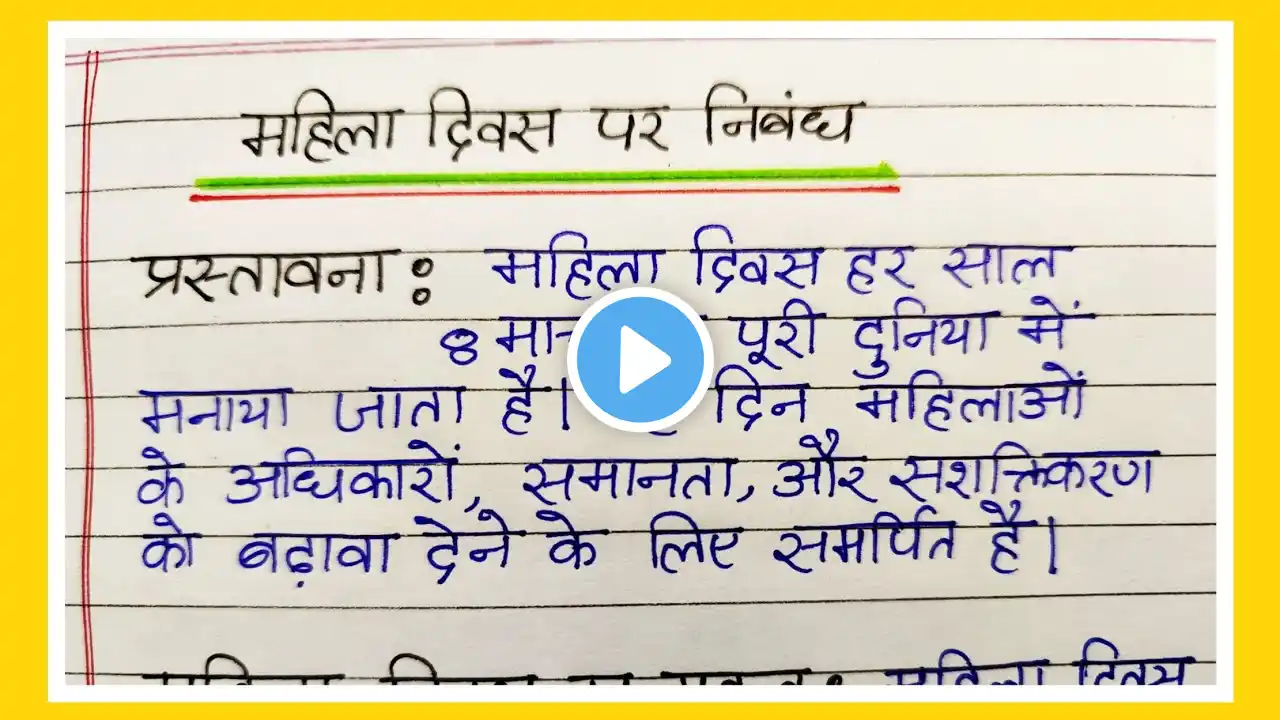 महिला दिवस पर निबंध
प्रस्तावना : महिला दिवस हर साल
8 पूरी दुनिया में
मनाया जाता है। दिन महिलाओं
के अधिकारों, समानता, और सशक्तिकरण
को बढ़ावा देने के लिए समर्पित है।
महिला दिवस